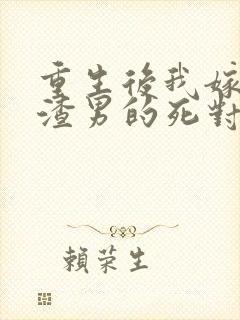 重生後我嫁
渣男的死對
賴荣生